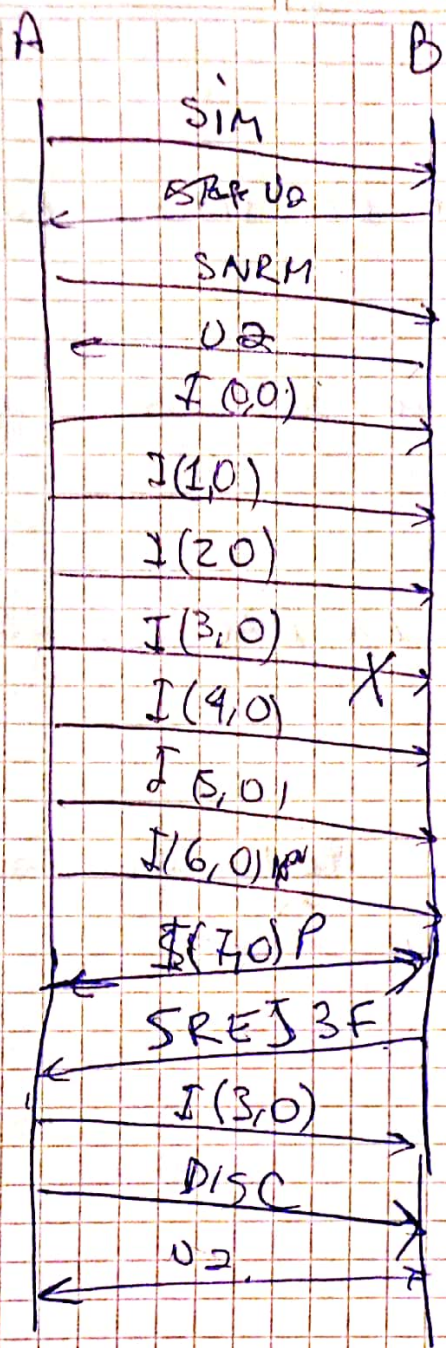 A B
SIM
UA
SNRM
UA
I(0,0)
I(1,0)
I(2 0)
I(3,0)
X
I(4,0)
I (5,0)
I(6,0)
I(7,0) P
SREJ 3F
I(3,0)
DISC
UA